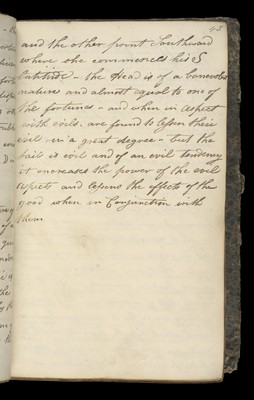 43
and the other point Southward
where she commences her S
Latitude - the Head is of a benevolent
nature and almost equal to one of
the fortunes - and when in aspect
with evils. are found to lessen their
evil in a great degree - but the
tail is evil and of an evil tendency
it encreases the power of the evil
aspects and lessens the effects of the
good when in Conjunction with
them